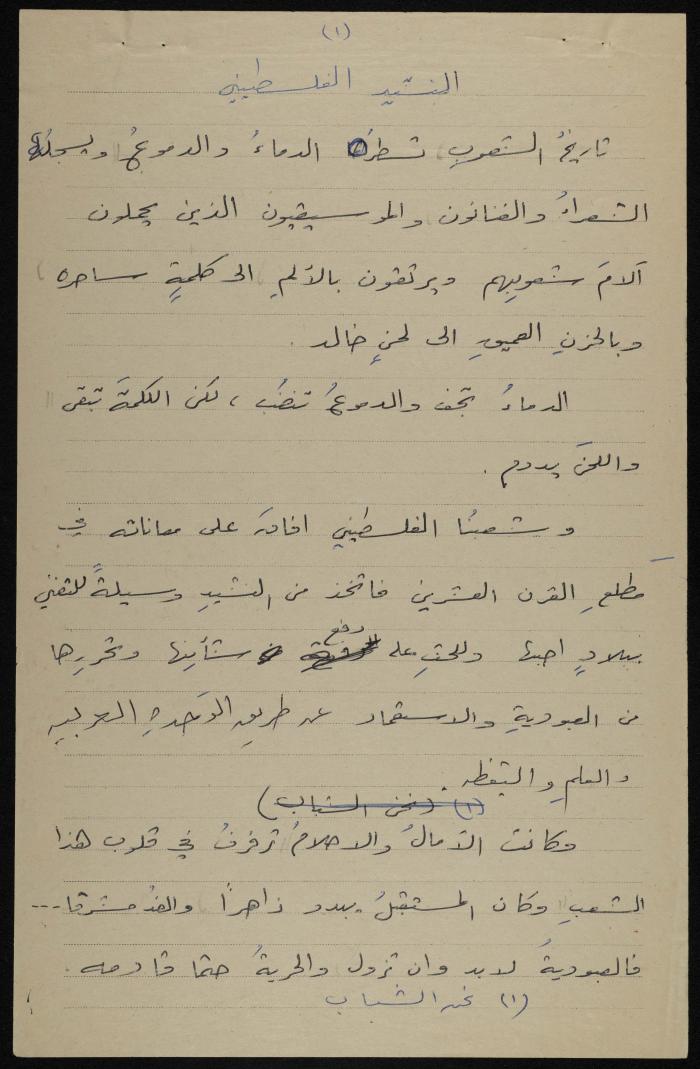 (١)
النشيد الفلسطيني
تاريخُ الشعوبِ تسطرُه الدماءُ والدموعُ ويسجلُه
الشعراءُ والفنانون والموسيقيون الذين يحملون
آلامَ شعوبِهم ويرتقون بالألمِ الى كلمةٍ ساحره
وبالحزنِ العميقِ الى لحنٍ خالد .
الدماءُ تجف والدموعُ تنضُب ، لكن الكلمةَ تبقى
واللحنَ يدوم .
وشعبُنا الفلسطيني افاقَ على معاناته في
مطلعِ القرن العشرين فاتخذ من النشيدِ وسيلةً للتغني
ببلادٍ احبها وللحثِ على رفع شأنِها وتحريرِها
من العبوديةِ والاستعمار عن طريقِ الوَحدةِ العربيه
والعلمِ واليقظه .
(١) (نحن الشباب)
وكانت الآمالُ والاحلامُ ترفرفُ في قلوب هذا
الشعبِ وكان المستقبلُ يبدو زاهراً والغدُ مشرقا ...
فالعبوديةُ لابد وان تزول والحريةُ حتما قادمه .
(١) نحن الشباب